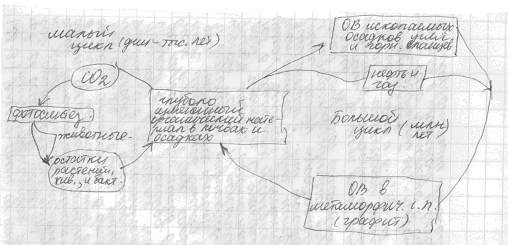 малый
цикл (дни-тыс. лет)
CO2
фотосинтез.
животные
остатки
растений,
жив., и бакт.
глубоко
органический мате-
риал в почвах и
осадках
ОВ ископаемых
осадков угля
и горн. сланцев
нефть и
газ
Большой
цикл (млн
лет)
ОВ в
метаморфич. г.п.
(графит)